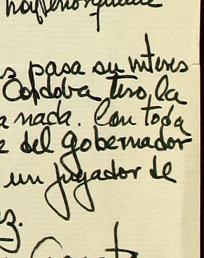 s pasa su interes
Cordoba tuvo la
a nada. Con toda
e del gobernador
un jugador de
z.